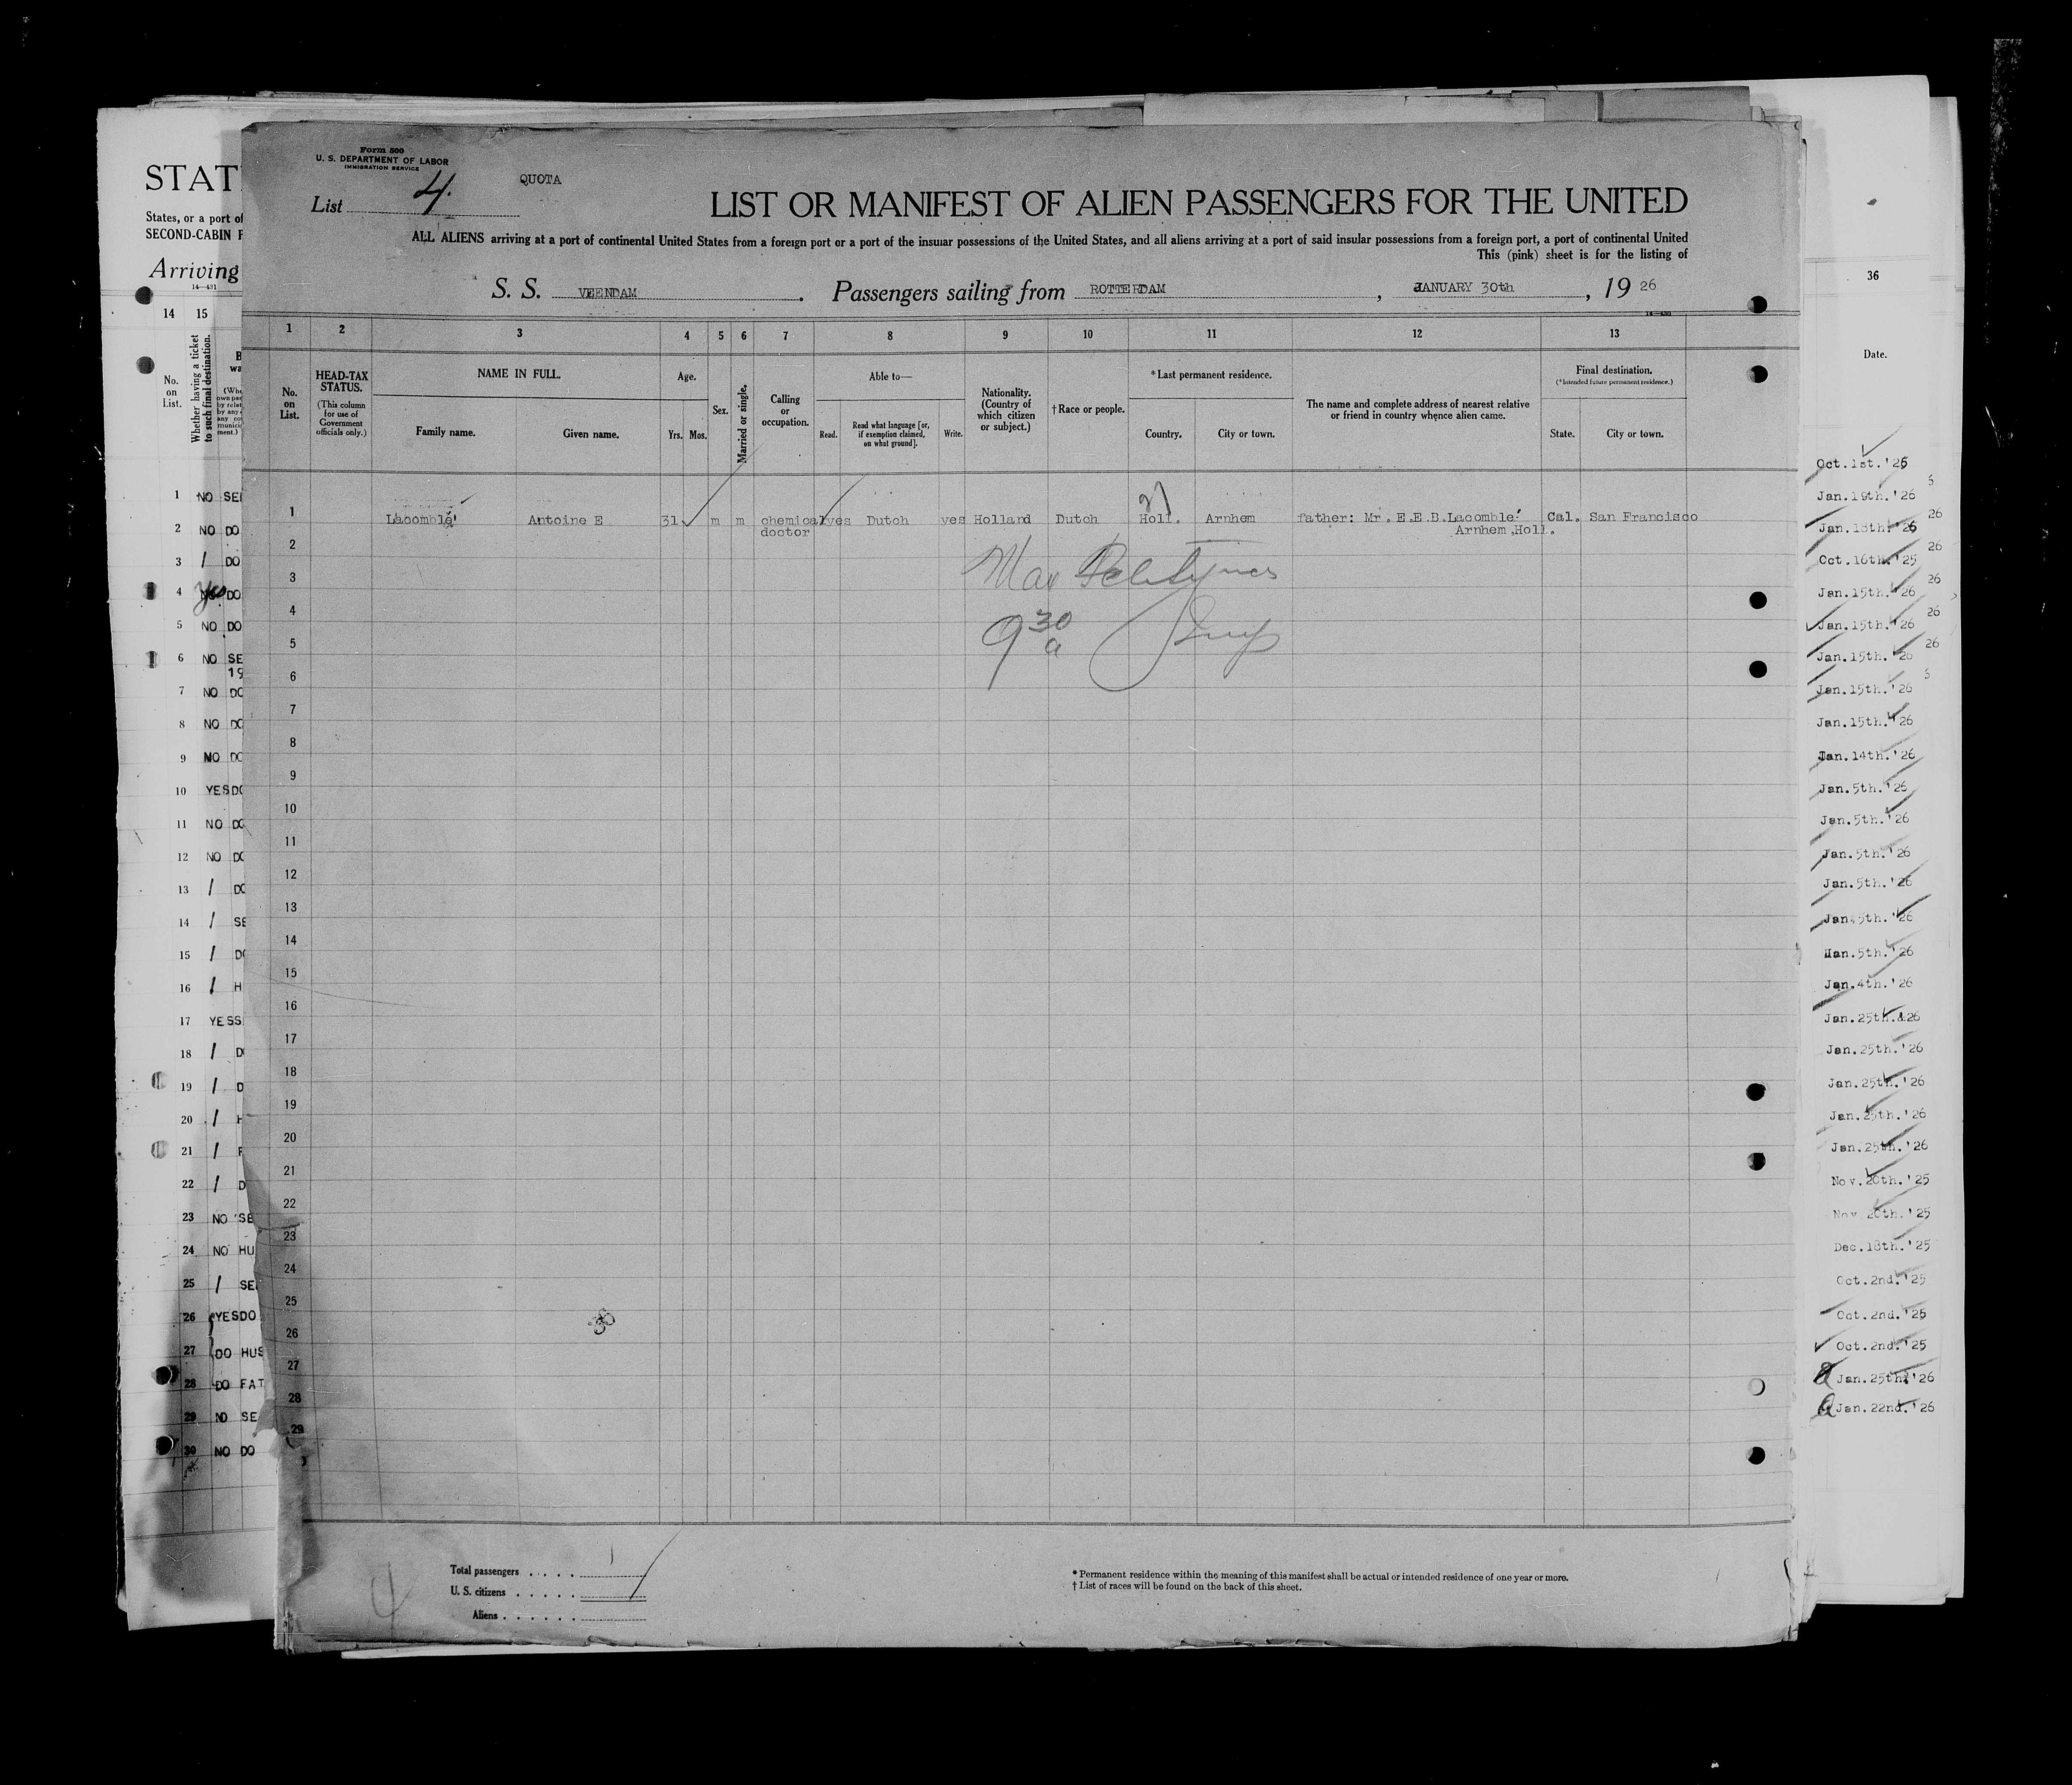 Form 500
U. S. DEPARTMENT OF LABOR
IMMIGRATION SERVICE
QUOTA
List 4.
LIST OR MANIFEST OF ALIEN PASSENGERS FOR THE UNITED
ALL ALIENS arriving at a port of continental United States from a foreign port or a port of the insular possessions of the United States, and all aliens arriving at a port of said insular possessions from a foreign port, a port of continental United
This (pink) sheet is for the listing of
S. S. VEENDAM. Passengers sailing from ROTTERDAM, JANUARY 30th, 19 26
1 2 3 4 5 6 7 8 9 10 11 12 13
No. on List.
HEAD-TAX STATUS.
(This column for use of Government officials only.)
NAME IN FULL.
Family name. Given name.
Age.
Yrs. Mos.
Sex.
Married or single.
Calling or occupation.
Able to—
Read. Read what language [or, if exemption claimed, on what ground]. Write.
Nationality. (Country of which citizen or subject.)
†Race or people.
*Last permanent residence.
Country. City or town.
The name and complete address of nearest relative or friend in country whence alien came.
Final destination.
(*Intended future permanent residence.)
State. City or town.
1 Lacomblé Antoine E 31 m m chemical yes Dutch yes Holland Dutch Holl. Arnhem father: Mr. E.E.B.Lacomblé Cal. San Francisco
doctor Arnhem,Holl.
2
3
4
9 30 a
5
6
7
8
9
10
11
12
13
14
15
16
17
18
19
20
21
22
23
24
25
26
27
28
29
Total passengers 1
U. S. citizens
Aliens
* Permanent residence within the meaning of this manifest shall be actual or intended residence of one year or more.
† List of races will be found on the back of this sheet.
4
STAT
States, or a port of
SECOND-CABIN
Arriving
14—431
14 15
No. on List.
Whether having a ticket to such final destination.
1 NO SE
2 NO DO
3 / DO
4 yes DO
5 NO DO
6 NO SE
19
7 NO DO
8 NO DO
9 NO DO
10 YES DO
11 NO DO
12 NO DO
13 / DO
14 / SE
15 / DO
16 / H
17 YES S
18 / D
19 / D
20 / H
21 / F
22 / D
23 NO SE
24 NO HU
25 / SE
26 YES DO
27 DO HUS
28 DO FAT
29 NO SE
30 NO DO
36
Date.
Oct.1st.'25
Jan.19th.'26
Jan.18th.'26
Oct.16th.'25
Jan.15th.'26
Jan.15th.'26
Jan.15th.'26
Jan.15th.'26
Jan.15th.'26
Jan.14th.'26
Jan.5th.'26
Jan.5th.'26
Jan.5th.'26
Jan.5th.'26
Jan.5th.'26
Jan.5th.'26
Jan.4th.'26
Jan.25th.'26
Jan.25th.'26
Jan.25th.'26
Jan.25th.'26
Jan.25th.'26
Nov.20th.'25
Nov.20th.'25
Dec.18th.'25
Oct.2nd.'25
Oct.2nd.'25
Oct.2nd.'25
Jan.25th.'26
Jan.22nd.'26